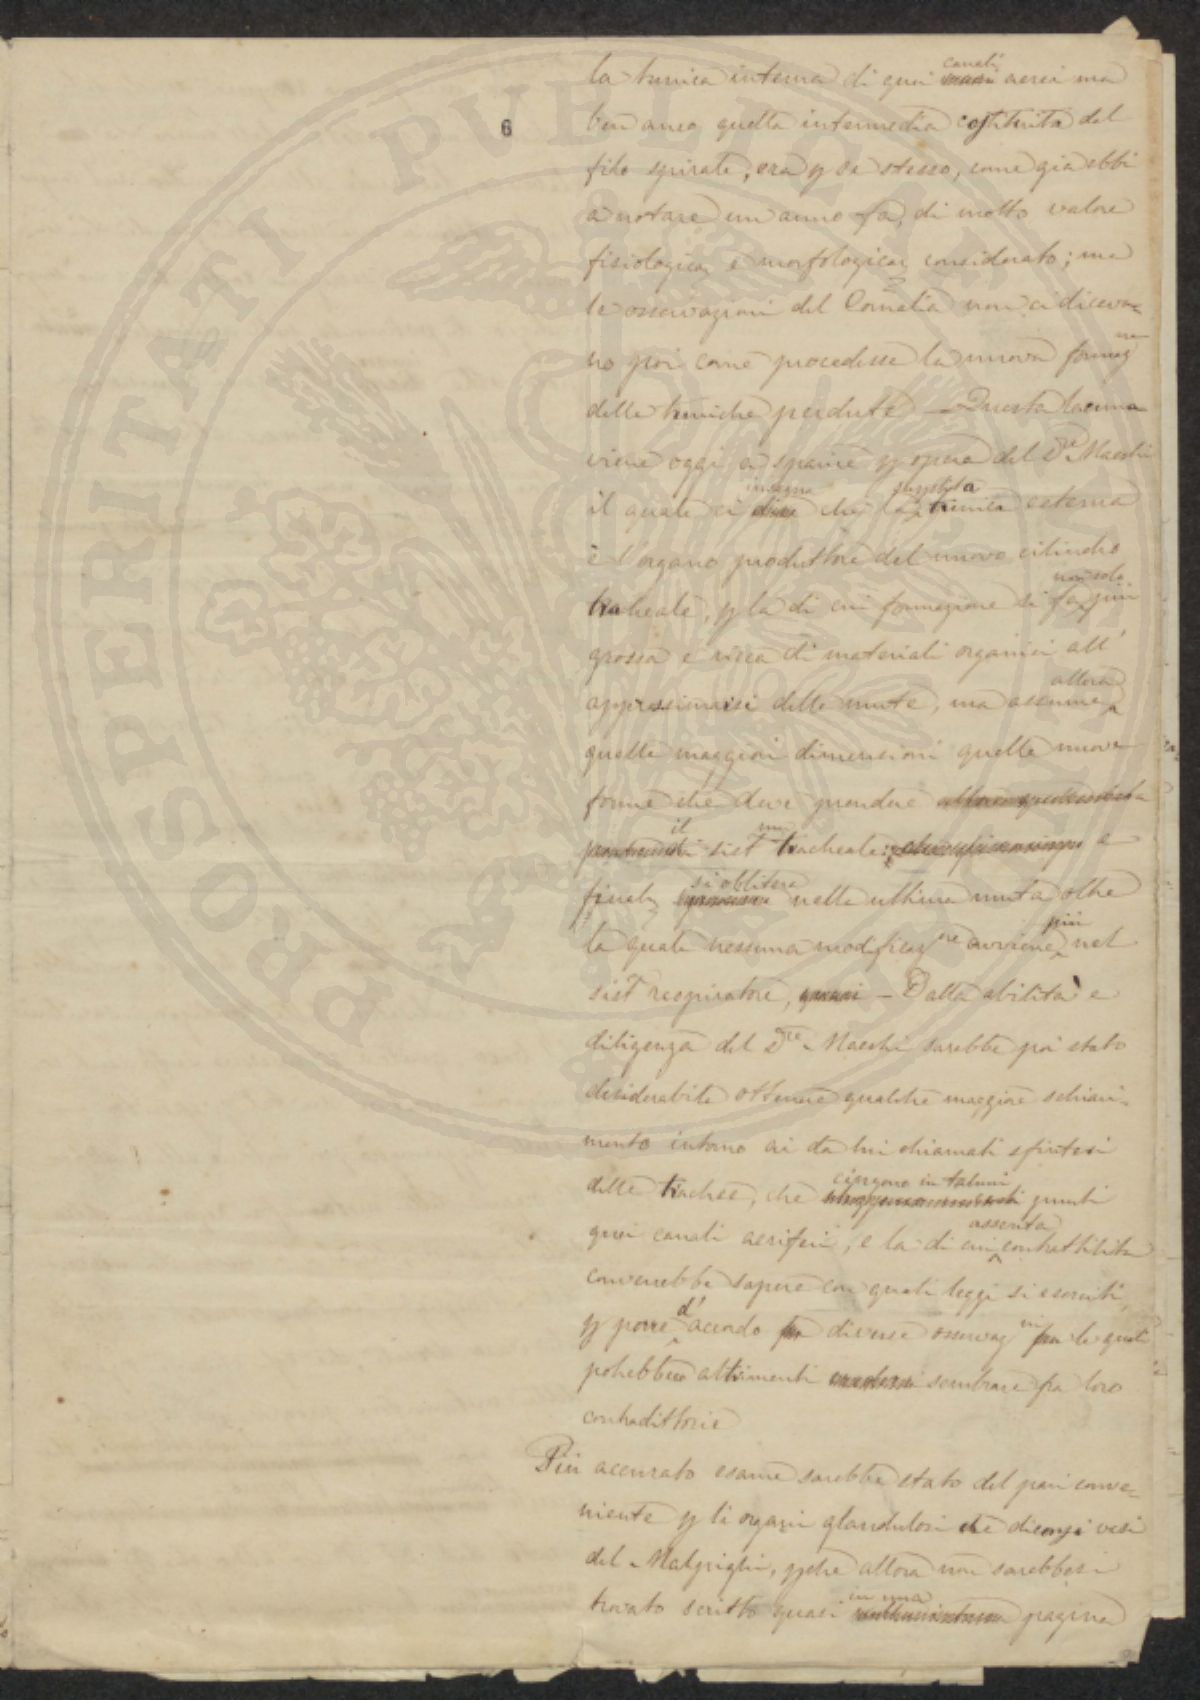 6
la tunica interna di quei canali aerei ma
ben anco quella intermedia costituita dal
filo spirale, era p se stesso, come già ebbi
a notare un anno fa, di molto valore
fisiologica e morfologica considerato; ma
le osservazioni del Cornalia non ci diceva=
no poi come procedesse la nuova formaz.ne
delle tuniche perdute — Questa lacuna
viene oggi a sparire p opera del D.re Maestri
il quale ci insegna che la suddetta tunica esterna
è l'organo produttore del nuovo cilindro
tracheale, p la di cui formazione si fa non solo più
grossa e ricca di materiali organici all'
approssimarsi delle mute, ma assume allora
quelle maggiori dimensioni quelle nuove
forme che deve prendere
il sist.ma tracheale; e
final si oblitera nella ultima muta oltre
la quale nessuna modificaz.ne avviene più nel
sist respiratore, — Dalla abilità e
diligenza del D.re Maestri sarebbe poi stato
desiderabile ottenere qualche maggiore schiari=
mento intorno ai da lui chiamati sfinteri
delle trachee, che cingono in taluni punti
quei canali aeriferi, e la di cui asserita contrattilità
converrebbe sapere con quali leggi si eserciti,
p porre d'accordo diverse osservaz.ni le quali
potrebbero altrimenti sembrare fra loro
contradittorie
Più accurato esame sarebbe stato del pari conve=
niente p li organi glandulosi che diconsi vasi
del Malpighi, pchè allora non sarebbesi
trovato scritto quasi in una pagina
PROSPERITATI PUBLICAE